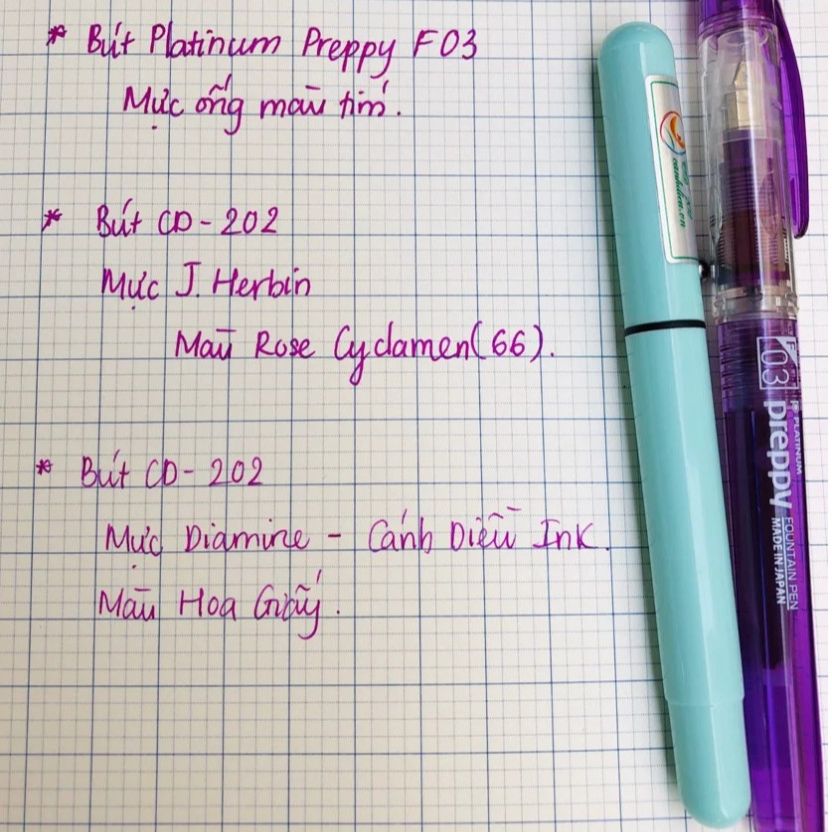 * Bút Platinum Preppy F03
Mực ống màu tím.
* Bút CD-202
Mực J. Herbin
Màu Rose Cyclamen(66).
* Bút CD-202
Mực Diamine - Cánh Diều Ink.
Màu Hoa Giấy.
canhdieu.vn
F
03
PLATINUM
preppy
FOUNTAIN PEN
MADE IN JAPAN